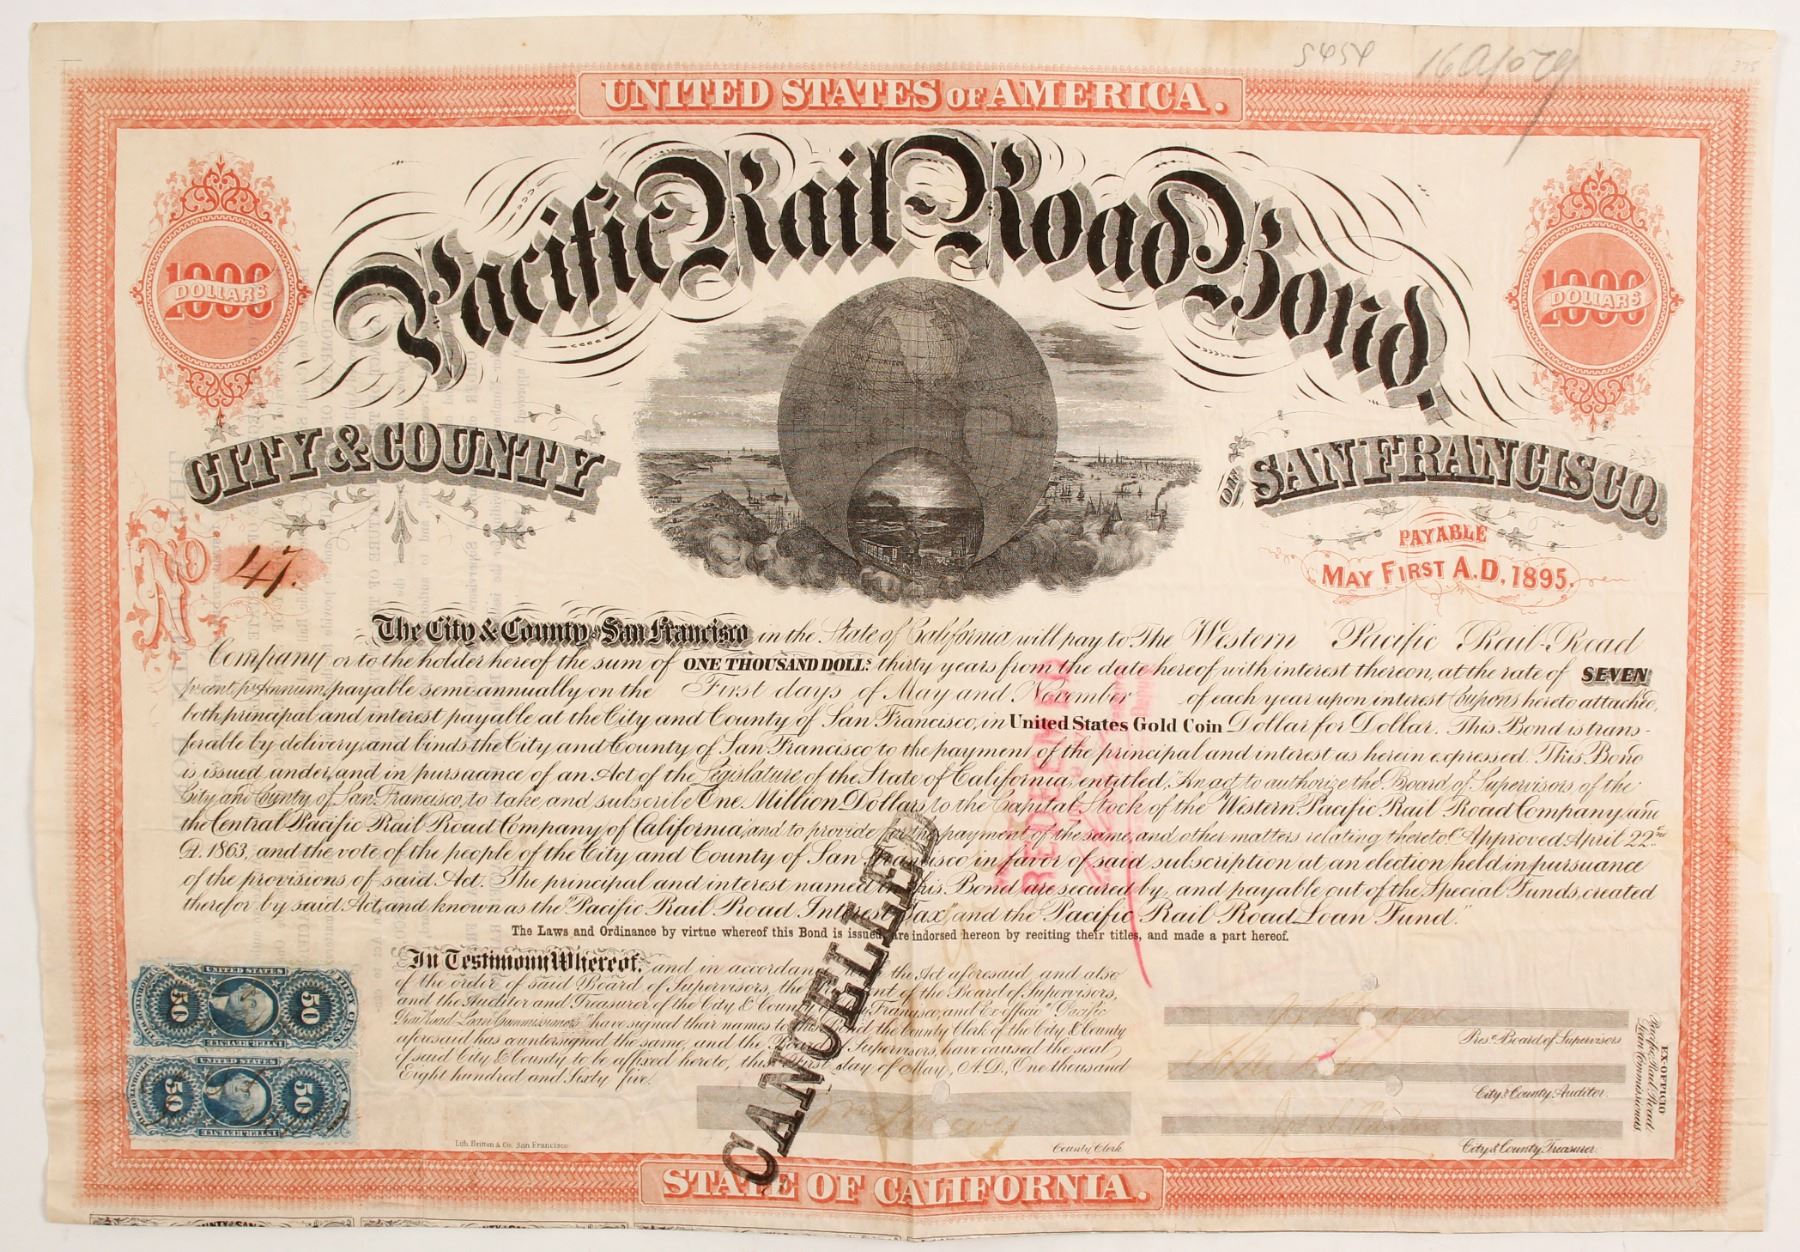 5454
UNITED STATES OF AMERICA.
Pacific Rail Road Bond.
1000
DOLLARS
1000
DOLLARS
CITY & COUNTY
OF SAN FRANCISCO.
PAYABLE
MAY FIRST A.D. 1895.
No. 47.
The City & County of San Francisco in the State of California will pay to The Western Pacific Rail-Road
Company or to the holder hereof the sum of ONE THOUSAND DOLLS thirty years from the date hereof with interest thereon, at the rate of SEVEN
per cent per Annum, payable semi annually on the First days of May and November of each year upon interest Coupons hereto attached,
both principal and interest payable at the City and County of San Francisco, in United States Gold Coin Dollar for Dollar. This Bond is trans-
ferable by delivery, and binds the City and County of San Francisco to the payment of the principal and interest as herein expressed. This Bond
is issued under, and in pursuance of an Act of the Legislature of the State of California, entitled, "An act to authorize the Board of Supervisors of the
City and County of San Francisco, to take and subscribe One Million Dollars to the Capital Stock of the Western Pacific Rail Road Company, and
the Central Pacific Rail Road Company of California, and to provide for the payment of the same, and other matters relating thereto. Approved April 22nd
A. 1863, and the vote of the people of the City and County of San Francisco in favor of said subscription at an election held in pursuance
of the provisions of said Act. The principal and interest named in this Bond are secured by, and payable out of the Special Funds, created
therefor by said Act, and known as the "Pacific Rail Road Interest Tax", and the "Pacific Rail Road Loan Fund."
The Laws and Ordinance by virtue whereof this Bond is issued, are indorsed hereon by reciting their titles, and made a part hereof.
REDEEMED
CANCELLED
In Testimony Whereof, and in accordance with the Act aforesaid, and also
of the order of said Board of Supervisors, the President of the Board of Supervisors,
and the Auditor and Treasurer of the City & County of San Francisco, and Ex-officio "Pacific
Rail Road Loan Commissioners" have signed their names to this Bond, the County Clerk of the City & County
aforesaid has countersigned the same, and the Board of Supervisors, have caused the seal
of said City & County to be affixed hereto, this First day of May, A.D, One thousand
Eight hundred and Sixty five.
UNITED STATES
50
FIFTY CENTS
INTER. REVENUE
UNITED STATES
50
FIFTY CENTS
INTER. REVENUE
Prest. Board of Supervisors
City & County Auditor.
City & County Treasurer.
EX-OFFICIO
Pacific Rail Road
Loan Commissioners
County Clerk
Lith. Britton & Co. San Francisco
STATE OF CALIFORNIA.